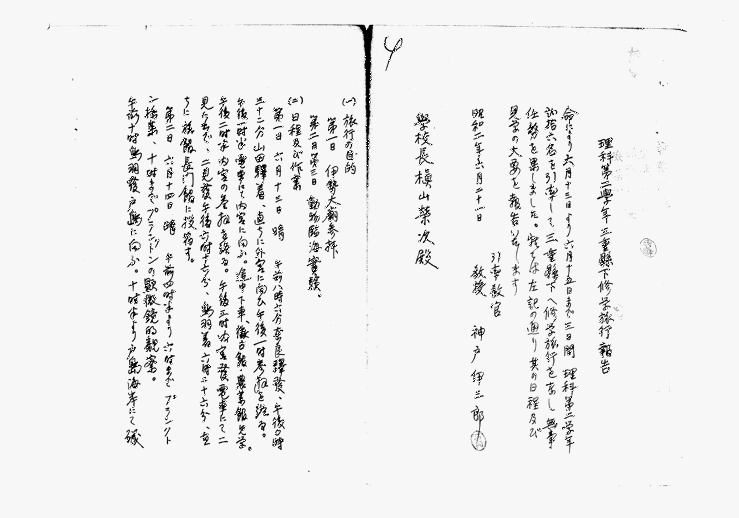 理科第二學年三重縣下修学旅行報告
命により六月十三日より六月十五日まで三日間 理科第二学年
六名を引率して三重縣下へ修学旅行をなし無事
任務を果しました。就ては左記の通り其の日程及び
見学の大要を報告致します
昭和二年六月二十一日
引率教官
教授 神戸伊三郎
學校長 槇山榮次殿
(一) 旅行の目的
第一日 伊勢大廟参拝
第二日第三日 動物臨海實驗。
(二) 日程及び作業
第一日 六月十三日 晴 午前八時六分奈良驛發、午後〇時
三十二分山田驛着、直ちに外宮に向ふ 午後一時参拝を終る。
午後一時半電車にて内宮に向ふ。途中下車、徴古館・農業館見学。
午後二時半内宮の参拝を終る。午後三時内宮發電車にて二
見に向ふ、二見發午後六時十六分、鳥羽着六時二十六分、直
ちに旅館長門館に投宿す。
第二日 六月十四日 晴 午前四時半より六時まで プランクト
ン採集、十時までプランクトンの顕微鏡的観察。
午前十時鳥羽發戸島に向ふ。十時半より戸島海岸にて磯